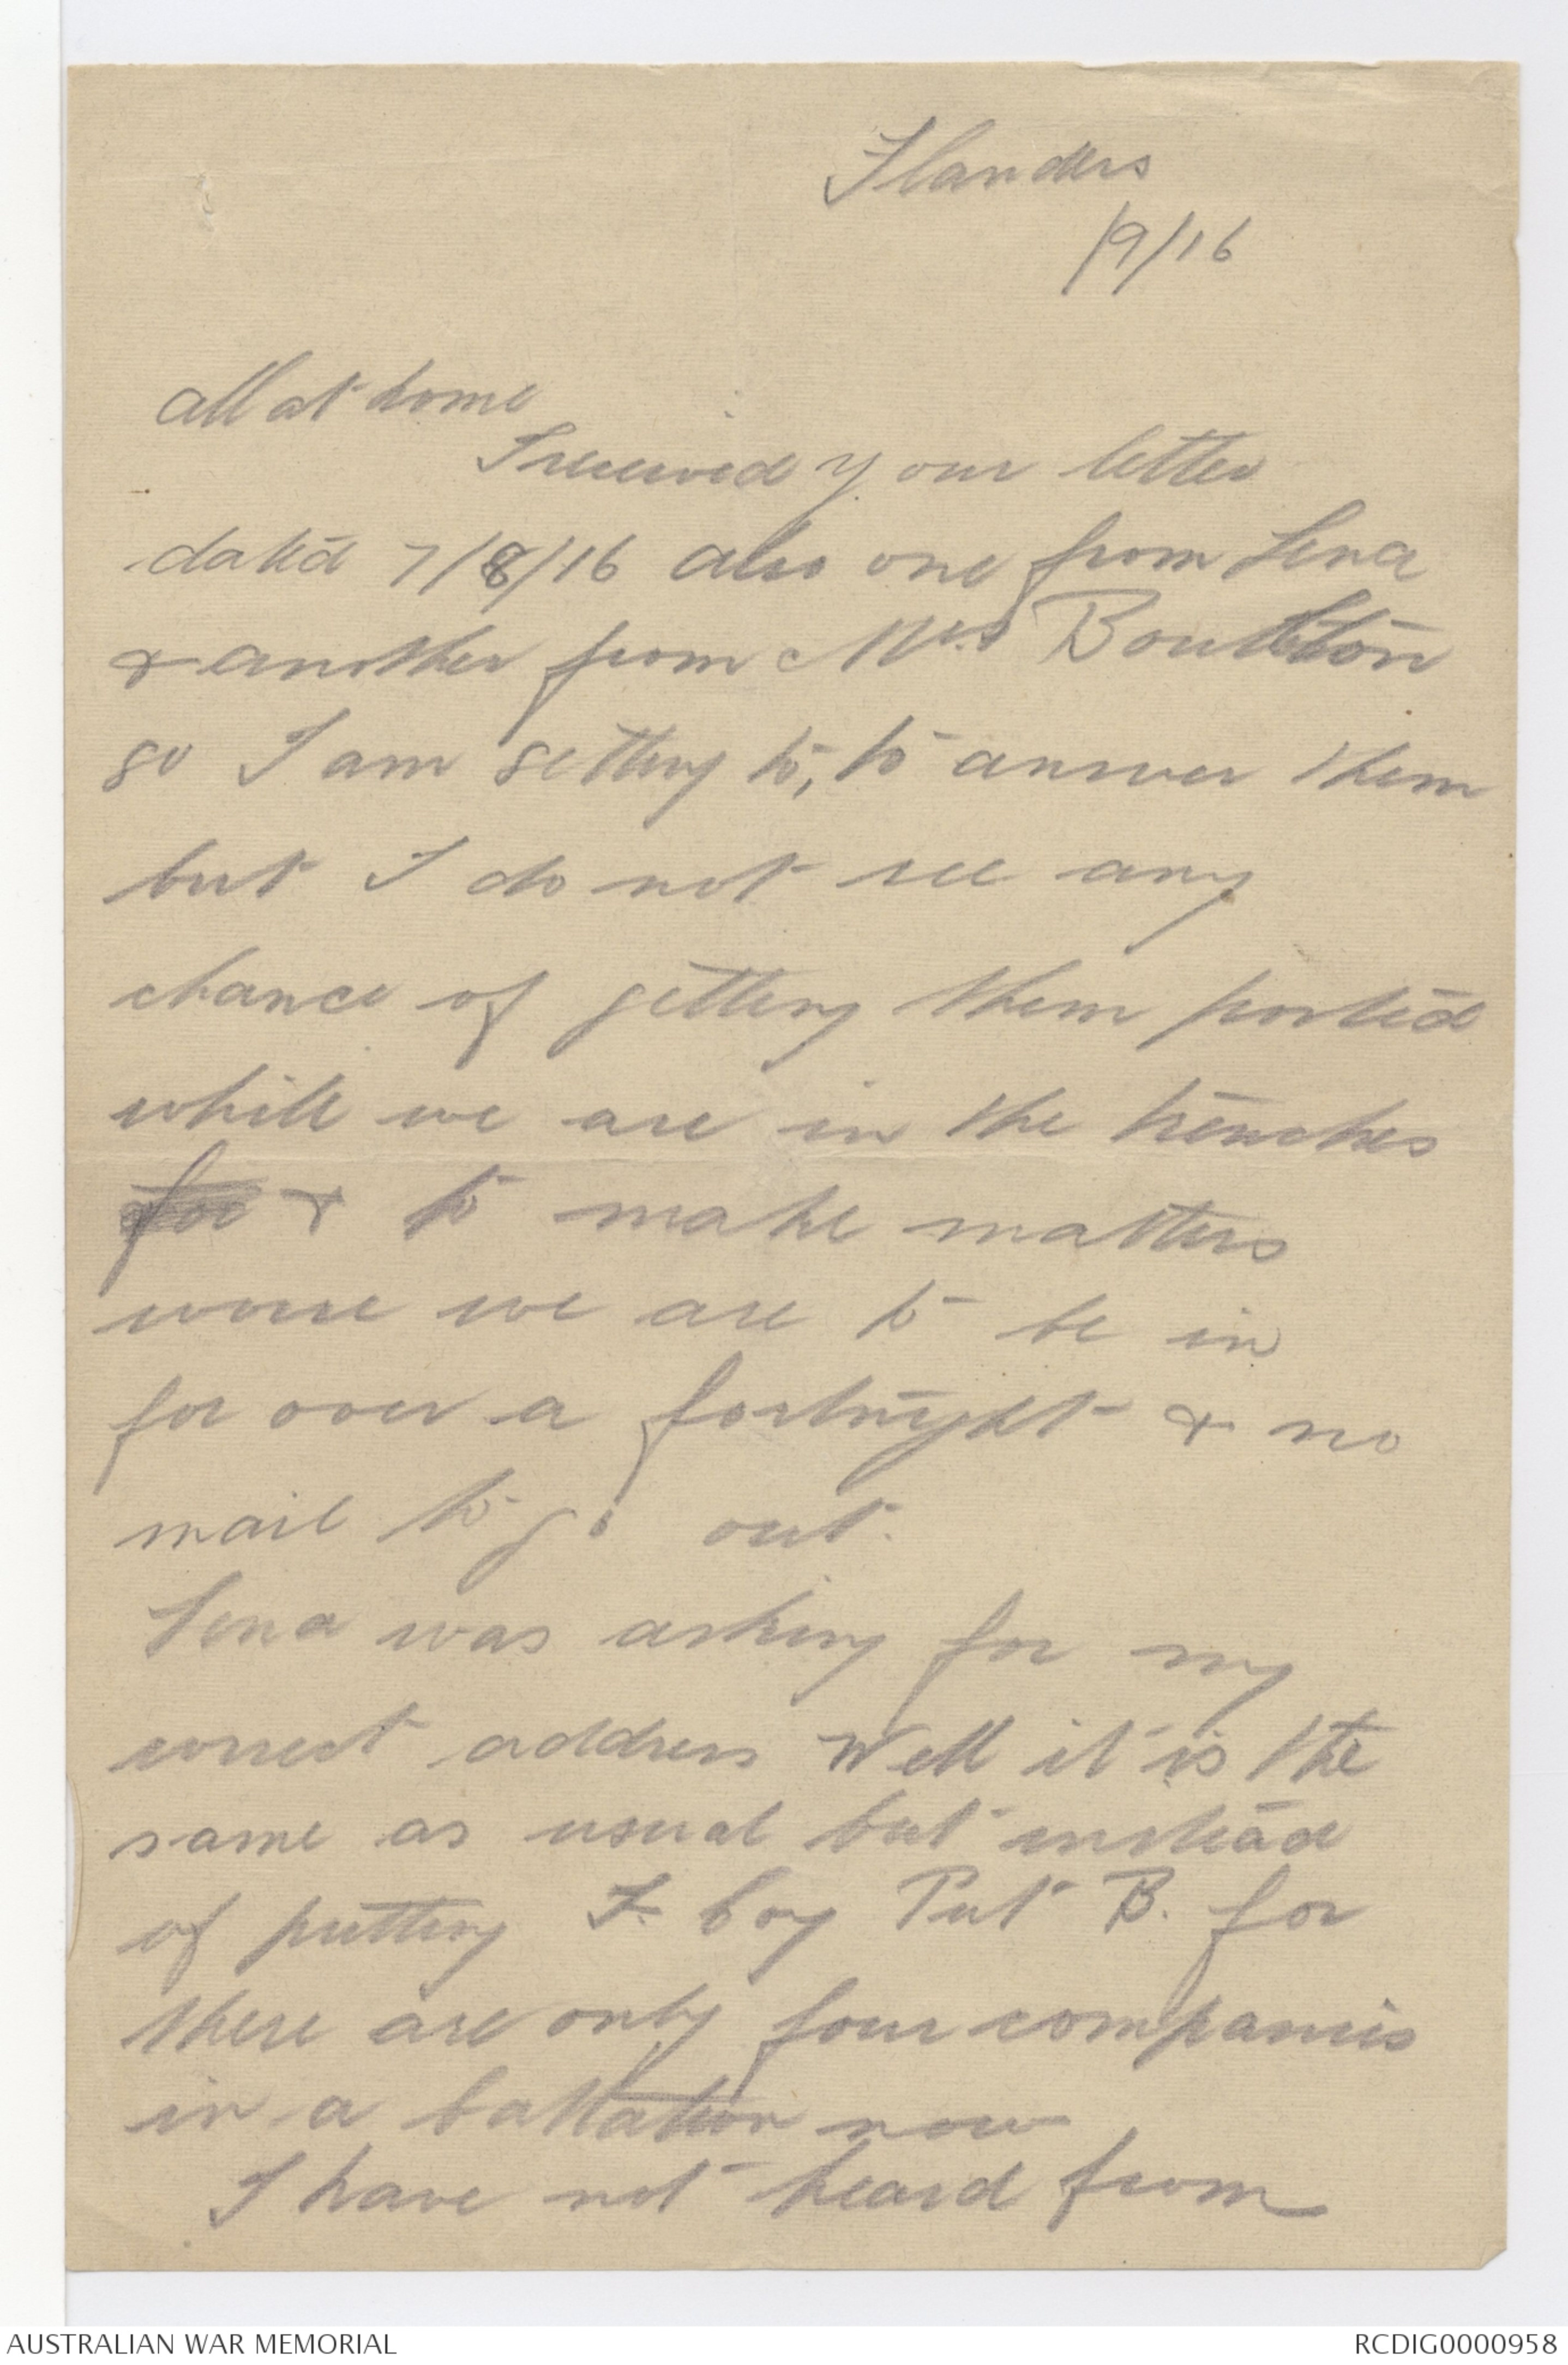 Flanders
/9/16
All at home
I received your letter
dated 7/8/16 also one from Lena
& another from Mrs Boulton
so I am setting to, to answer them
but I do not see any
chance of getting them posted
while we are in the trenches
for & to make matters
worse we are to be in
for over a fortnight & no
mail to go out.
Lena was asking for my
correct address Well it is the
same as usual but instead
of putting F. Coy Put B. for
there are only four companies
in a battalion now
I have not heard from
AUSTRALIAN WAR MEMORIAL
RCDIG0000958